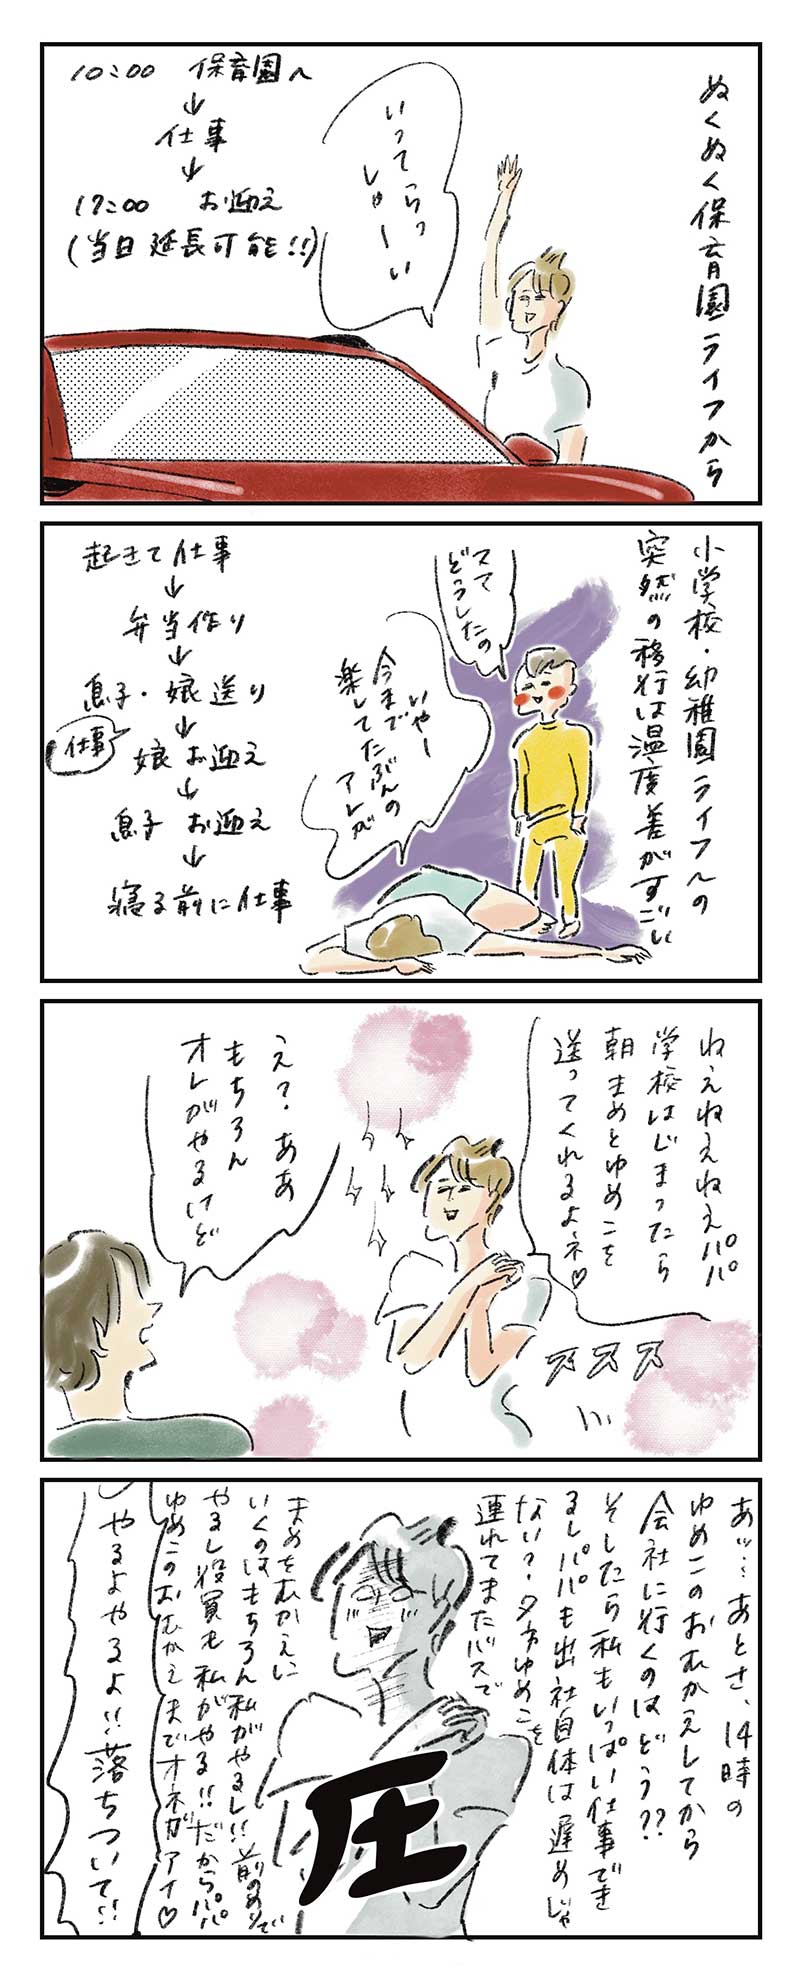 ぬくぬく保育園ライフから
いってらっ
しゃーい
10:00 保育園へ
↓
仕事
↓
17:00 お迎え
(当日延長可能!!)
小学校・幼稚園ライフへの
突然の移行は温度差がすごい
ママ
どうしたの
いやー
今まで
楽してたぶんの
アレが
起きて仕事
↓
弁当作り
↓
息子・娘送り
↓
仕事
娘お迎え
↓
息子 お迎え
↓
寝る前に仕事
ねえねえねえパパ
学校はじまったら
朝まめとゆめこを
送ってくれるよネ♡
ススス
え?ああ
もちろん
オレがやるけど
あッ…あとさ、14時の
ゆめこのおむかえしてから
会社に行くのはどう??
そしたら私もいっぱい仕事でき
るしパパも出社自体は遅めじゃ
ない?夕方ゆめこを
連れてまたバスで
まめをむかえに
いくのはもちろん私がやるし!!
やるし役員も私がやる!!だからパパ
ゆめこのおむかえまでオネガアイ♡
圧
やるよやるよ!!落ちついて!!